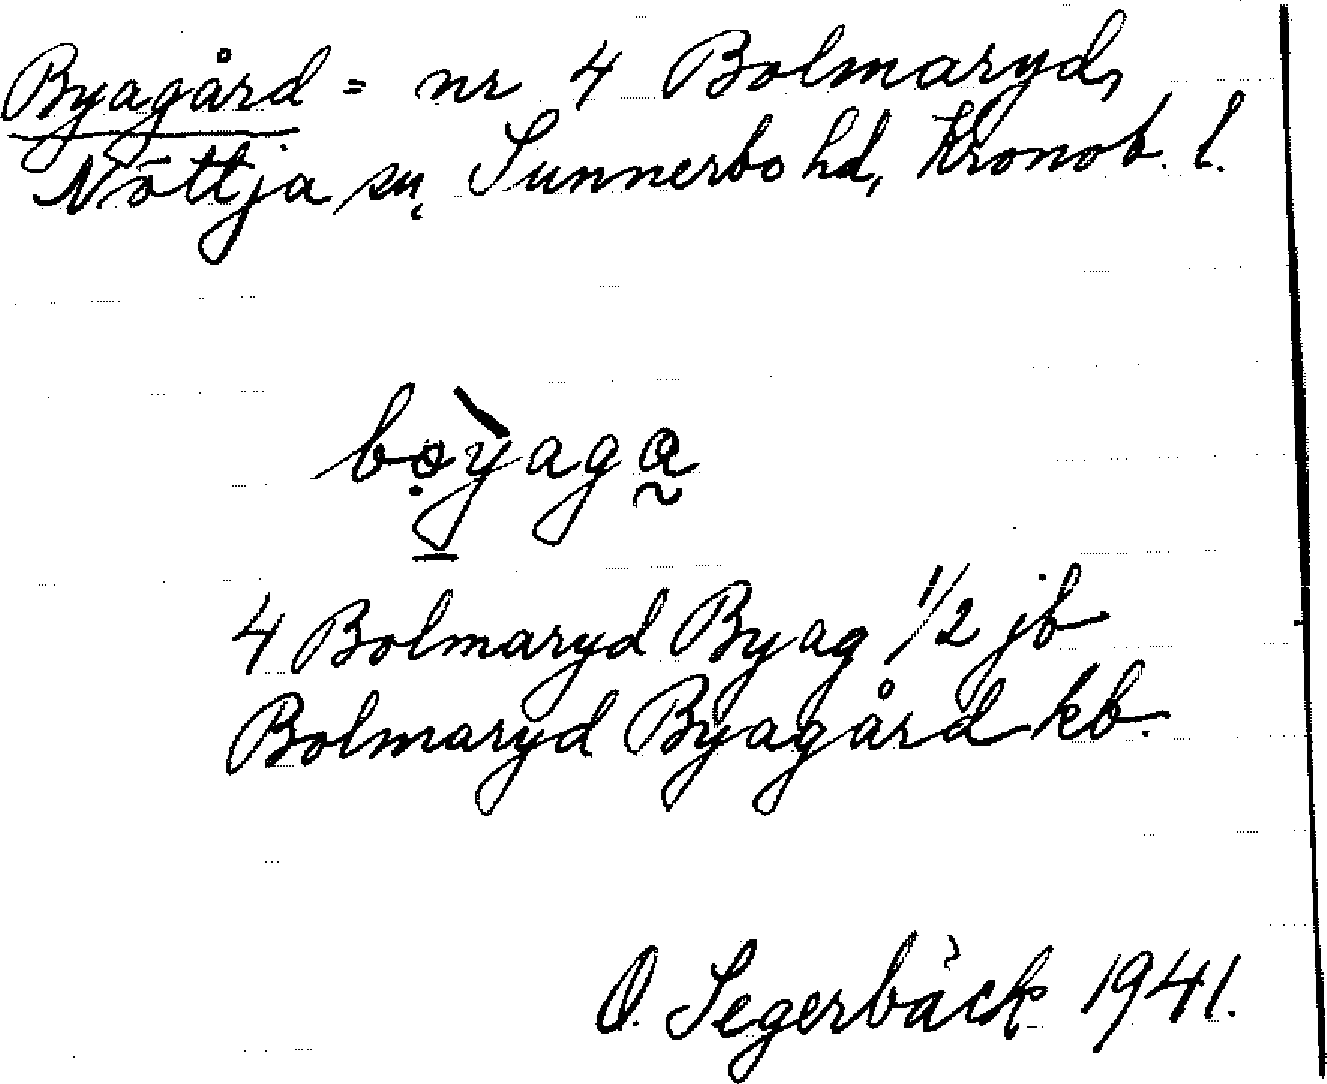 Byagård = nr 4 Bolmaryd,
Nöttja sn, Sunnerbo hd, Kronob. l.
bọ̀yaga̰
4 Bolmaryd Byag 1/2 jb
Bolmaryd Byagård kb.
O. Segerbäck 1941.